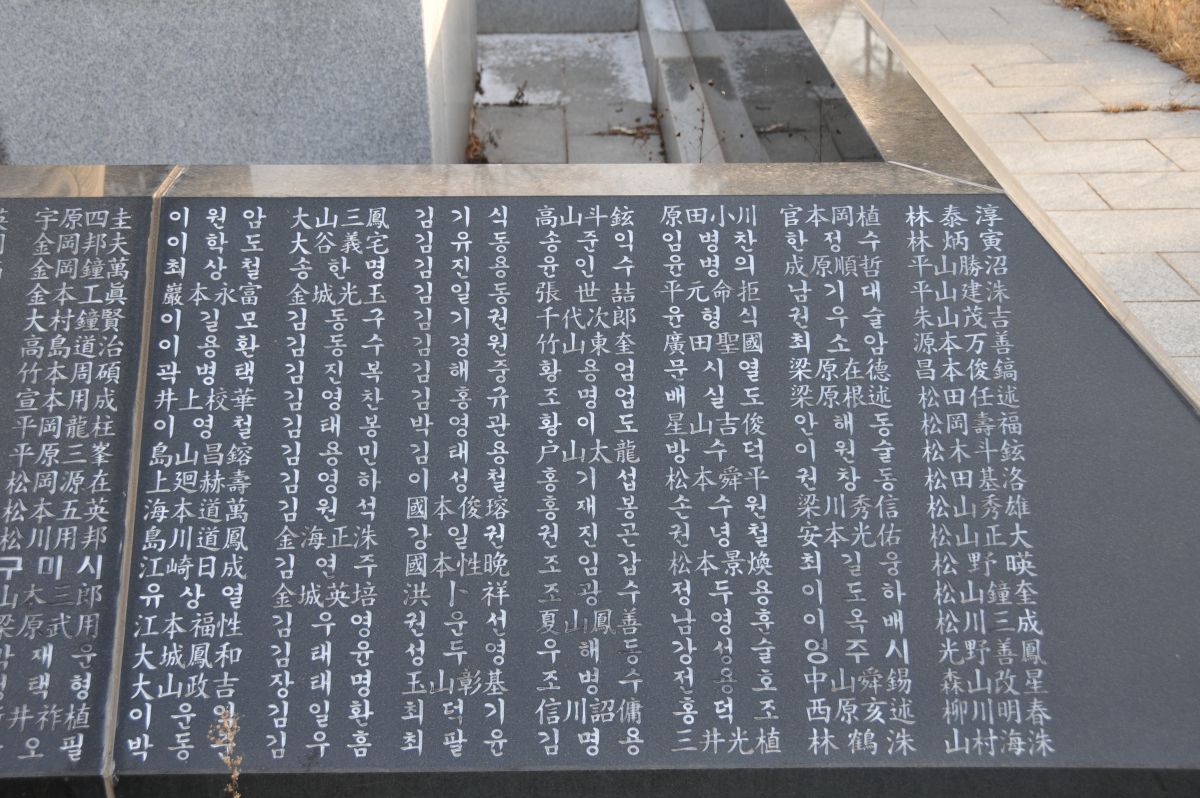 宇原四圭
金岡邦夫
金岡鐘萬
金本工眞
大村鐘賢
高島道治
竹本周碩
宣本用成
平岡龍柱
平原三峯
松岡源在
松本五英
松川用邦
구미시
山木三郎
梁原武用
재운
택형
井祚植
오필
이원암
이학도
최상철
巖本永富
이길모
이용환
곽병택
井上校華
이영철
島山昌鎔
上廻赫壽
海本道萬
島川道鳳
江崎日成
유상열
江本福性
大城鳳和
大山政吉
이운
박동
大山三鳳
大谷義宅
송한명
金城光玉
김동구
김동수
김진복
김영찬
김태봉
김용민
김영하
김원석
金海正洙
김연주
金城英培
김우영
김태윤
장태명
김일환
김우흠
김기식
김유동
김진용
김일동
김기권
김경원
김해중
김홍규
박영관
김태용
이성철
國本俊瑢
강일권
國本性晩
洪卜祥
권운선
성두영
玉山彰基
최덕기
최팔윤
高山斗鉉
송준익
윤인수
張世喆
千代次郎
竹山東奎
황용엄
조명업
황이도
户山太龍
홍기섭
홍재봉
권진곤
조임갑
조광수
夏山鳳善
우해동
조병수
信川詔傭
김명용
原田小川
임병찬
윤병의
平元命拒
윤형식
廣田聖國
문시열
배실도
星山吉俊
방수덕
松本舜平
손수원
권녕철
松本景煥
정두용
남영훈
강성술
전용호
홍덕조
三井光植
官本岡植
한정수
成原順哲
남기대
권우술
최소암
梁原在德
梁原根述
안해동
이원술
권창동
梁川秀信
安本光佑
최길웅
이도하
이옥배
영주시
中山舜錫
西原亥述
林鶴洙
林泰淳
林炳寅
平山勝沼
平山建洙
朱本茂吉
源本万善
昌本俊鎬
松田任述
松岡壽福
松木斗鉉
松田基洛
松山秀雄
松山正大
松野暎
松山鐘奎
松川三成
光野善鳳
森山改星
柳川明春
山村海洙